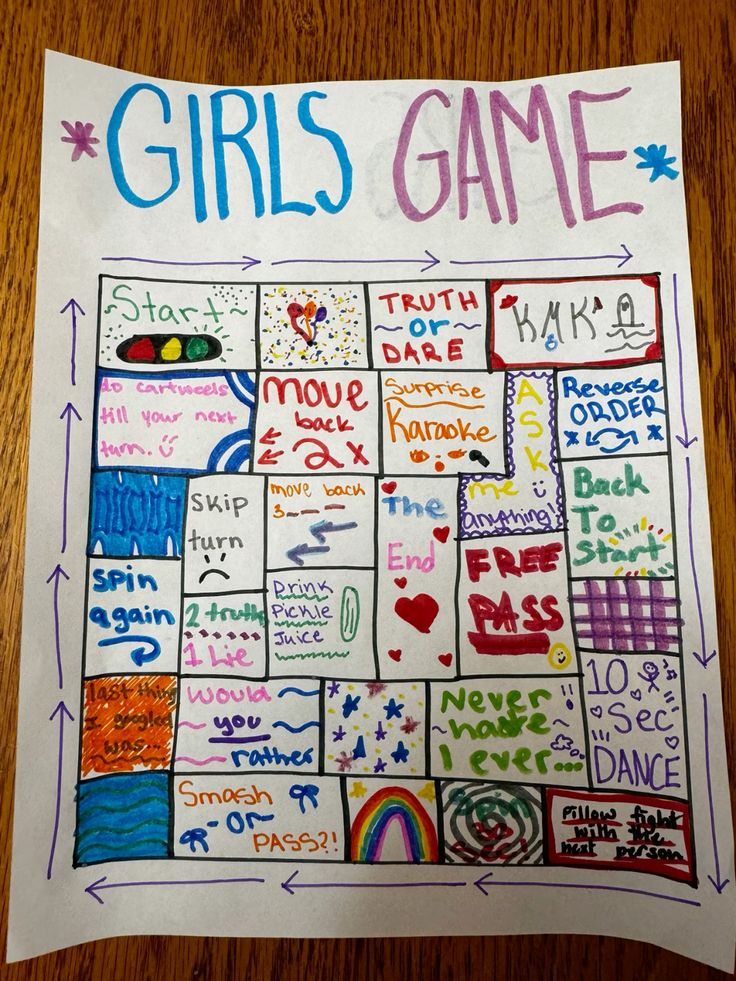 GIRLS GAME
~Start~
TRUTH
~or~
DARE
KMK
do cartweels
till your next
turn.
move
back
2x
Surprise
Karaoke
ASK
me
anything!
Reverse
ORDER
skip
turn
move back
3
The
End
Back
To
Start
spin
again
2 truth
1 Lie
Drink
Pickle
Juice
FREE
PASS
last thing
I googled
was...
Would
you
rather
Never
~have~
I ever...
10
Sec
DANCE
Smash
-or-
PASS?!
Spin
30
Sec!
Pillow fight
with the
next person